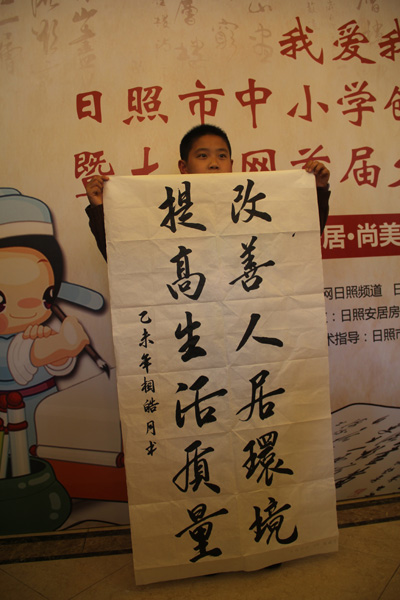 我爱我
日照市中小学
暨大 网首届
居·尚美
网日照频道
日照安居房
术指导：日照市
改善人居環境
提高生活质量
乙未年相皓月书